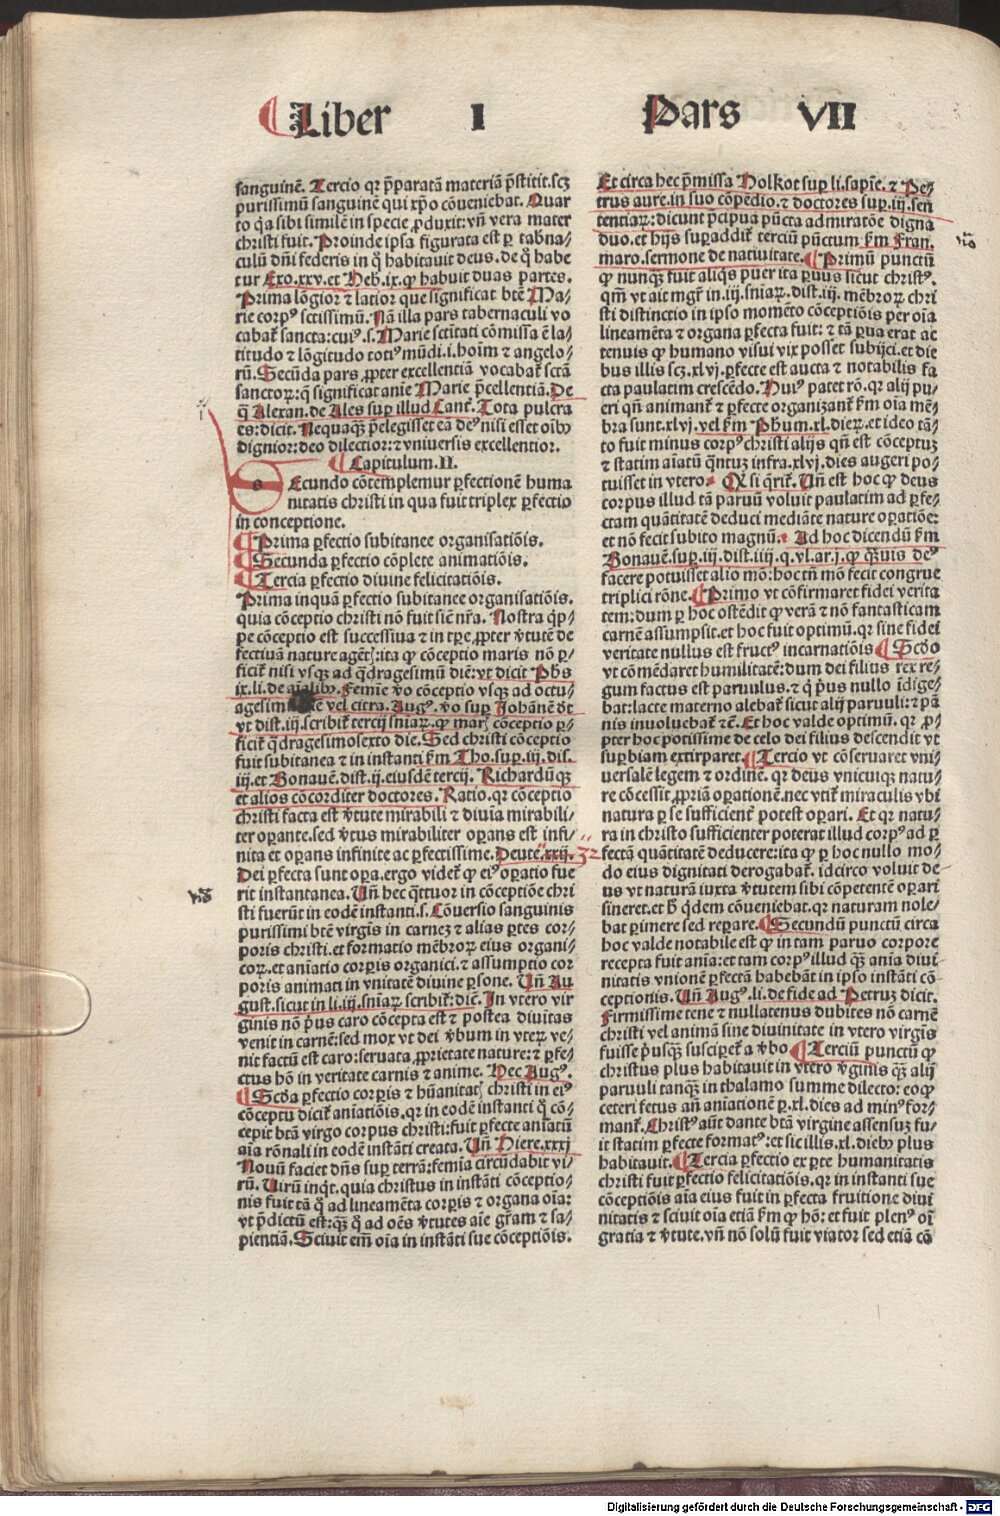 Liber I Pars VII
sanguinē. Tercio qꝛ p̄paratā materiā p̄stitit.scꝫ
purissimū sanguinē qui xp̄o cōueniebat. Quar
to q̄a sibi similē in specie ꝓduxit:vn̄ vera mater
christi fuit. Proinde ipsa figurata est ꝑ tabna/
culū dn̄i federis in q̊ habitauit deus.de q̊ habe
tur Exo.xxv.et Heb.ix.ꝙ habuit duas partes.
Prima lōgior ⁊ latior que significat btē Ma/
rie corpꝰ sctissimū. Nā illa pars tabernaculi vo
cabat̄ sancta:cuiꝰ.s.Marie sctitati cōmissa ē la/
titudo ⁊ lōgitudo totiꝰ mūdi.i.hoīm ⁊ angelo/
rū. Secūda pars ꝓpter excellentiā vocabat̄ sctā
sanctoꝝ:q̄ significat anīe Marie p̄cellentiā. De
q̄ Alexan.de Ales suꝑ illud Cant̄. Tota pulcra
es:dicit. Nequaꝗ̄ p̄elegisset eā deꝰ nisi esset oībꝰ
dignior:deo dilectior:⁊ vniuersis excellentior.
¶ Capitulum.II.
Secundo cōtemplemur ꝑfectionē huma
nitatis christi in qua fuit triplex ꝑfectio
in conceptione.
¶ Prima ꝑfectio subitanee organisatiōis.
¶ Secunda ꝑfectio cōplete animatiōis.
¶ Tercia ꝑfectio diuine felicitatiōis.
Prima inquā ꝑfectio subitanee organisatiōis.
quia cōceptio christi nō fuit siē nr̄a. Nostra q̄p/
pe cōceptio est successiua ⁊ in tꝑe ꝓpter v̄tutē de
fectiuā nature agēt̄:ita ꝙ cōceptio maris nō ꝑ/
ficit̄ nisi vsqꝫ ad q̄dragesimū diē:vt dicit Phs
ix.li.de aīalibꝰ. Femīe v̄o cōceptio vsqꝫ ad octu/
agesim vel citra. Augꝰ. v̄o suꝑ Johānē dt̄
vt dist.iij.scribit̄ tercij sniaꝝ.ꝙ mar̄ cōceptio ꝑ/
ficit̄ q̄dragesimosexto die. Sed christi cōceptio
fuit subitanea ⁊ in instanti ẜm Tho.suꝑ.iij.dis.
iij.et Bonauē.dist.ij.eiusdē tercij. Richardūqꝫ
et alios cōcorditer doctores. Ratio.qꝛ cōceptio
christi facta est v̄tute mirabili ⁊ diuia mirabili/
ter oꝑante.sed v̄tus mirabiliter oꝑans est infi/
nita et oꝑans infinite ac ꝑfectissime. Deute.xxij. 32
Dei ꝑfecta sunt oꝑa.ergo videt̄ ꝙ eiꝰ oꝑatio fue
rit instantanea. Vn̄ hec q̄ttuor in cōceptiōe chri
sti fuerūt in eodē instanti.s. Cōuersio sanguinis
purissimi btē virgis in carneꝫ ⁊ alias ꝑtes cor/
poris christi.et formatio mēbroꝝ eius organi/
coꝝ.et aniatio corꝑis organici.⁊ assumptio cor
poris animati in vnitatē diuine ꝑsone. Vn̄ Au
gust.sicut in li.iij.sniaꝝ scribit̄:diē. In vtero vir
ginis nō p̄us caro cōcepta est ⁊ postea diuitas
venit in carnē:sed mox vt dei v̄bum in vteꝝ ve/
nit factū est caro:seruata ꝓprietate nature:⁊ ꝑfe/
ctus hō in veritate carnis ⁊ anime. Hec Augꝰ.
¶ Scd̄a ꝑfectio corꝑis ⁊ hūanitat̄ christi in eiꝰ
cōceptu dicit̄ aniatiōis.qꝛ in eodē instanti q̊ cō/
cepit btā virgo corpus christi:fuit ꝑfecte aniatū
aīa rōnali in eodē instāti creata. Vn̄ Hiere.xxxj
Nouū faciet dn̄s suꝑ terrā:femīa circūdabit vi/
rū. Virū inqt̄.quia christus in instāti cōceptio/
nis fuit tā q̊ ad lineamēta corꝑis ⁊ organa oīa:
vt p̄dictū est:qꝫ q̊ ad oēs v̄tutes aīe gr̄am ⁊ sa/
pientiā. Sciuit em̄ oīa in instāti sue cōceptiōis.
Et circa hec p̄missa Holkot suꝑ li.sapīe.⁊ Pe/
trus aure.in suo cōpēdio.⁊ doctores suꝑ.iij.sen
tentiaꝝ:dicunt p̄cipua pūcta admiratōe digna
duo.et hijs suꝑaddit̄ terciū pūctum ẜm Fran.
maro.sermone de natiuitate. ¶ Primū punctū
ꝙ nunꝗ̄ fuit aliqs puer ita ꝑuus sicut christꝰ.
qm̄ vt ait mgr̄ in.iij.sniaꝝ.dist.iij. mēbroꝝ chri
sti distinctio in ipso momēto cōceptiōis per oīa
lineamēta ⁊ organa ꝑfecta fuit: ⁊ tā ꝑua erat ac
tenuis ꝙ humano visui vix posset subijci.et die
bus illis scꝫ.xlvj.ꝑfecte est aucta ⁊ notabilis fa
cta paulatim crescēdo. Huiꝰ patet rō.qꝛ alij pu/
eri qn̄ animant̄ ⁊ ꝑfecte organizant̄ ẜm oīa mē/
bra sunt.xlvj.vel ẜm Phūm.xl.dieꝝ.et ideo tā/
to fuit minus corpꝰ christi alijs qn̄ est cōceptuꝫ
⁊ statim aīatū q̄ntuꝫ infra.xlvj.dies augeri po/
tuisset in vtero. Qꝫ si q̄rit̄. Vn̄ est hoc ꝙ deus
corpus illud tā paruū voluit paulatim ad ꝑfe/
ctam quātitatē deduci mediāte nature oꝑatiōe:
et nō fecit subito magnū. Ad hoc dicendū ẜm
Bonauē.suꝑ.iij.dist.iiij.q.vl.ar.j.ꝙ q̄uis deꝰ
facere potuisset alio mō:hoc tn̄ mō fecit congrue
triplici rōne. ¶ Primo vt cōfirmaret fidei verita
tem:dum ꝑ hoc ostēdit ꝙ verā ⁊ nō fantasticam
carnē assumpsit.et hoc fuit optimū.qꝛ sine fidei
veritate nullus est fructꝰ incarnatiōis ¶ Scd̄o
vt cōmēdaret humilitatē:dum dei filius rex re/
gum factus est paruulus.⁊ q̄ p̄us nullo īdige/
bat:lacte materno alebat̄ sicut alij paruuli:⁊ pā
nis inuoluebat̄ ⁊c̄. Et hoc valde optimū.qꝛ ꝓ/
pter hoc potissime de celo dei filius descendit vt
suꝑbiam extirparet. ¶ Tercio vt cōseruaret vni/
uersalē legem ⁊ ordinē.qꝛ deus vnicuiqꝫ natu/
re cōcessit ꝓpriā oꝑationē.nec vtit̄ miraculis vbi
natura ꝑ se sufficient̄ potest oꝑari. Et qꝛ natu/
ra in christo sufficienter poterat illud corpꝰ ad ꝑ
fectā quātitatē deducere:ita ꝙ ꝑ hoc nullo mo/
do eius dignitati derogabat̄.idcirco voluit de/
us vt naturā iuxta v̄tutem sibi cōpetentē oꝑari
sineret.et h̄ q̄dem cōueniebat.qꝛ naturam nole/
bat ꝑimere sed reꝑare. ¶ Secundū punctū circa
hoc valde notabile est ꝙ in tam paruo corpore
recepta fuit anīa:et tam corpꝰ illud ꝗ̄ anīa diui
nitatis vnionē ꝑfectā habebāt in ipso instāti cō
ceptionis. Vn̄ Augꝰ.li.de fide ad Petruꝫ dicit.
Firmissime tene ⁊ nullatenus dubites nō carnē
christi vel animā sine diuinitate in vtero virgīs
fuisse p̄usꝗ̄ susciꝑet̄ a v̄bo ¶ Terciū punctū ꝙ
christus plus habitauit in vtero v̄ginis ꝗ̄ alij
paruuli tanꝗ̄ in thalamo summe dilecto:eo ꝙ
ceteri fetus an̄ aniationē ꝑ.xl.dies ad minꝰ for/
mant̄. Christꝰ aūt dante btā virgine assensuꝫ fu/
it statim ꝑfecte formatꝰ:et sic illis.xl.diebꝰ plus
habitauit. ¶ Tercia ꝑfectio ex ꝑte humanitatis
christi fuit ꝑfectio felicitatiōis.qꝛ in instanti sue
cōceptiōis aīa eius fuit in ꝑfecta fruitione diui
nitatis ⁊ sciuit oīa etiā ẜm ꝙ hō: et fuit plenꝰ oī
gratia ⁊ v̄tute.vn̄ nō solū fuit viator sed etiā cō
Digitalisierung gefördert durch die Deutsche Forschungsgemeinschaft - DFG